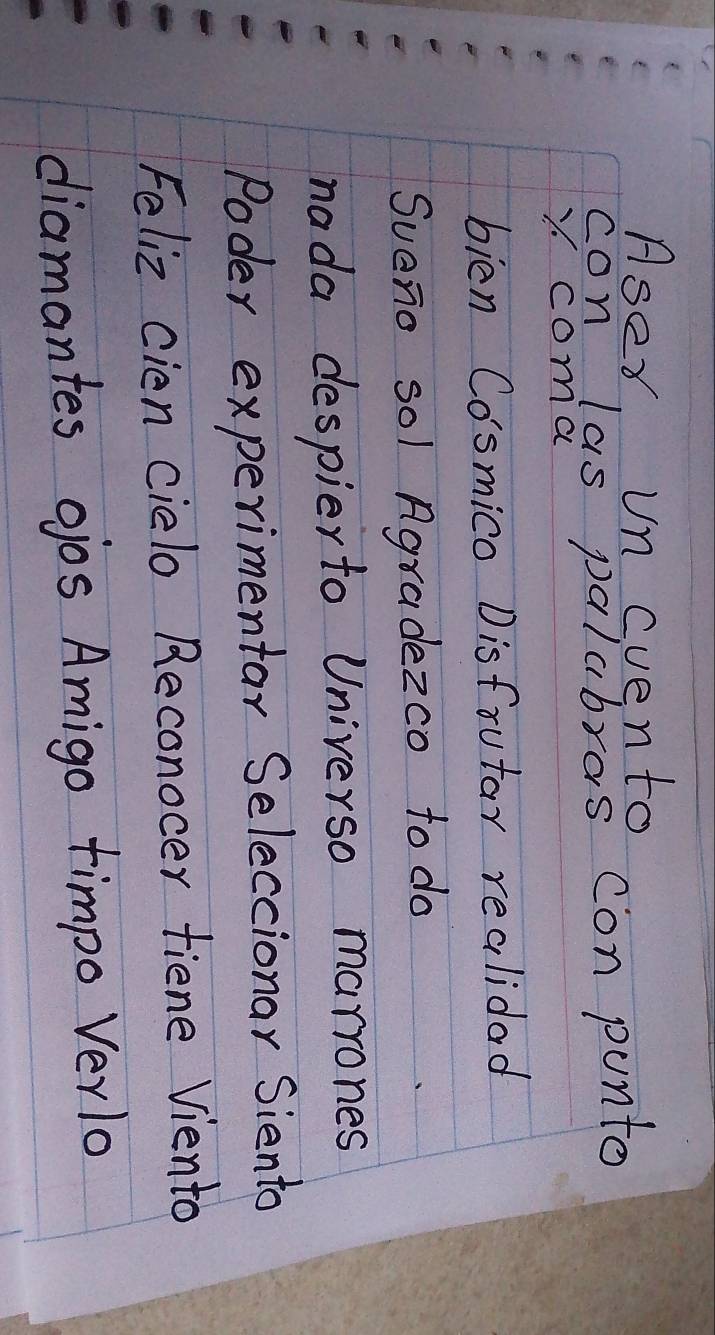 Aser un cuento
con las palabras con punto
y coma
bien Cósmico Disfrutar realidad
Sueño sol Agradezco todo
nada despierto Universo marrones
Poder experimentar Seleccionar Siento
Feliz Cien Cielo Reconocer tiene Viento
diamantes ojos Amigo timpo Verlo